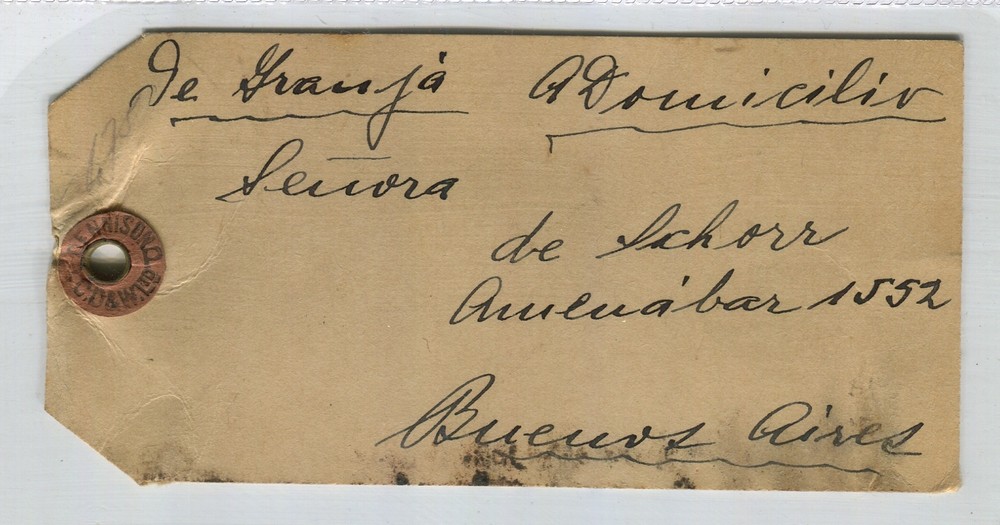 De Granja A Domicilio
Señora
de Schorr
Amenábar 1552
Buenos Aires
DENNISON